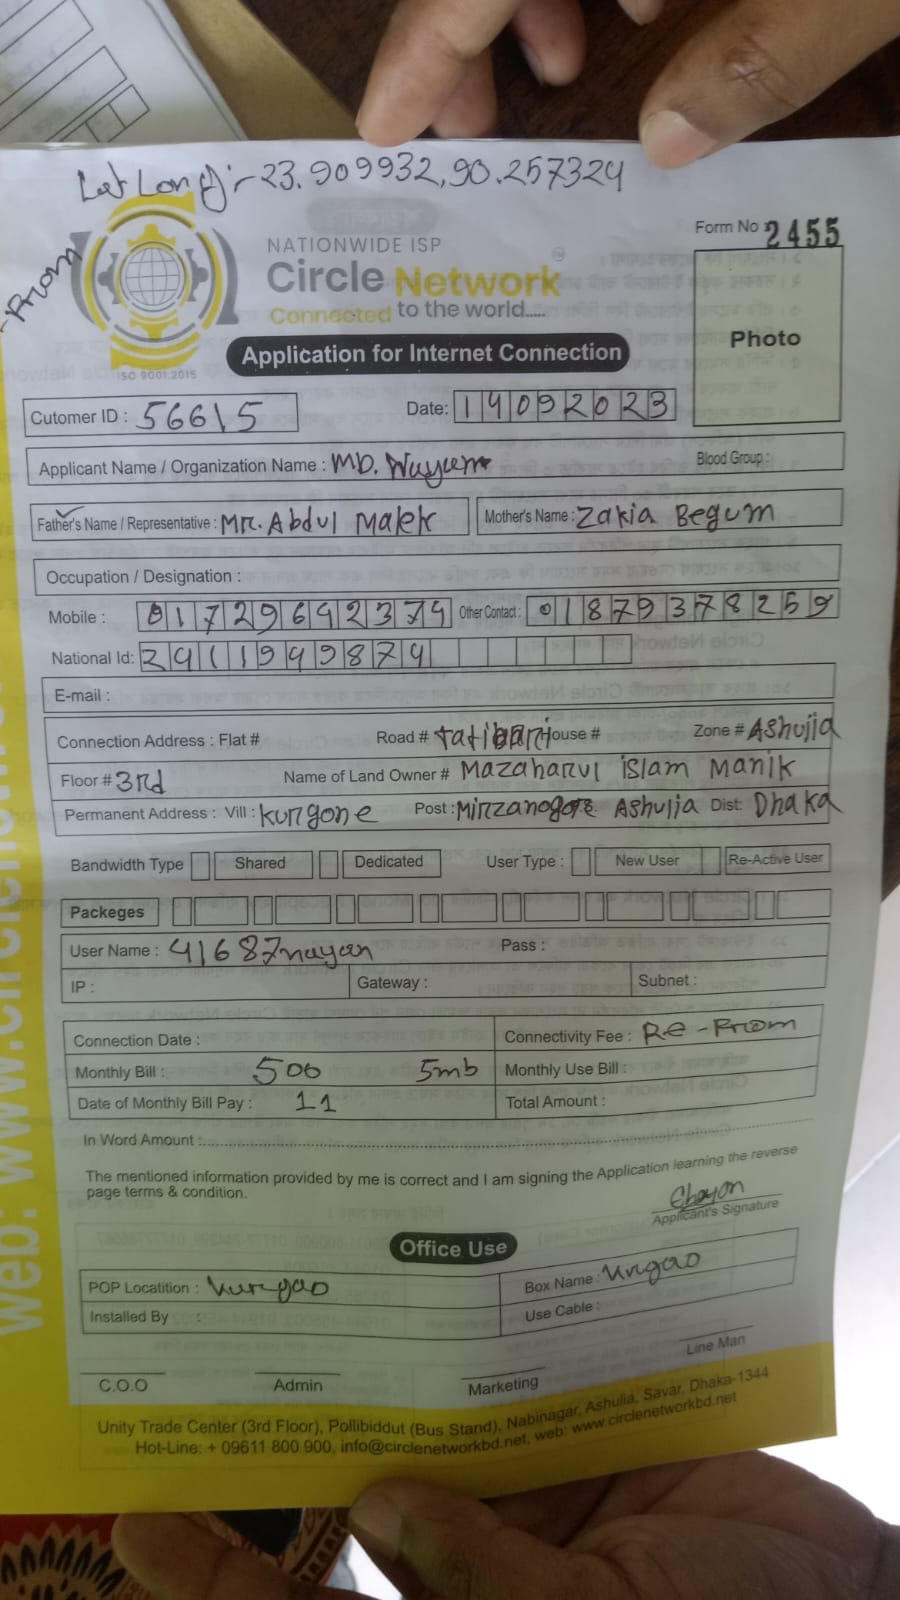 Lat Long:- 23.909932, 90.257324
-From
Form No 2455
NATIONWIDE ISP
Circle Network
Connected to the world.....
ISO 9001:2015
Photo
Application for Internet Connection
Cutomer ID : 56615
Date: 14092023
Applicant Name / Organization Name : MD. Nayem
Blood Group :
Father's Name / Representative : Mr. Abdul Malek
Mother's Name : Zakia Begum
Occupation / Designation :
Mobile : 01729642374 Other Contact : 01879378259
National Id: 2911999874
E-mail :
Connection Address : Flat # Road # tatibari House # Zone # Ashulia
Floor # 3rd Name of Land Owner # Mazaharul islam Manik
Permanent Address : Vill : kurgone Post : Mirzanogor Ashulia Dist: Dhaka
Bandwidth Type Shared Dedicated User Type : New User Re-Active User
Packeges
User Name : 41687nayan Pass :
IP : Gateway : Subnet :
Connection Date : Connectivity Fee : Re-From
Monthly Bill : 500 5mb Monthly Use Bill :
Date of Monthly Bill Pay : 11 Total Amount :
In Word Amount :
The mentioned information provided by me is correct and I am signing the Application learning the reverse
page terms & condition.
Applicant's Signature
Office Use
POP Locatition : kurgao Box Name : kurgao
Installed By : Use Cable :
C.O.O Admin Marketing Line Man
Unity Trade Center (3rd Floor), Pollibiddut (Bus Stand), Nabinagar, Ashulia, Savar, Dhaka-1344
Hot-Line: + 09611 800 900, info@circlenetworkbd.net, web: www.circlenetworkbd.net